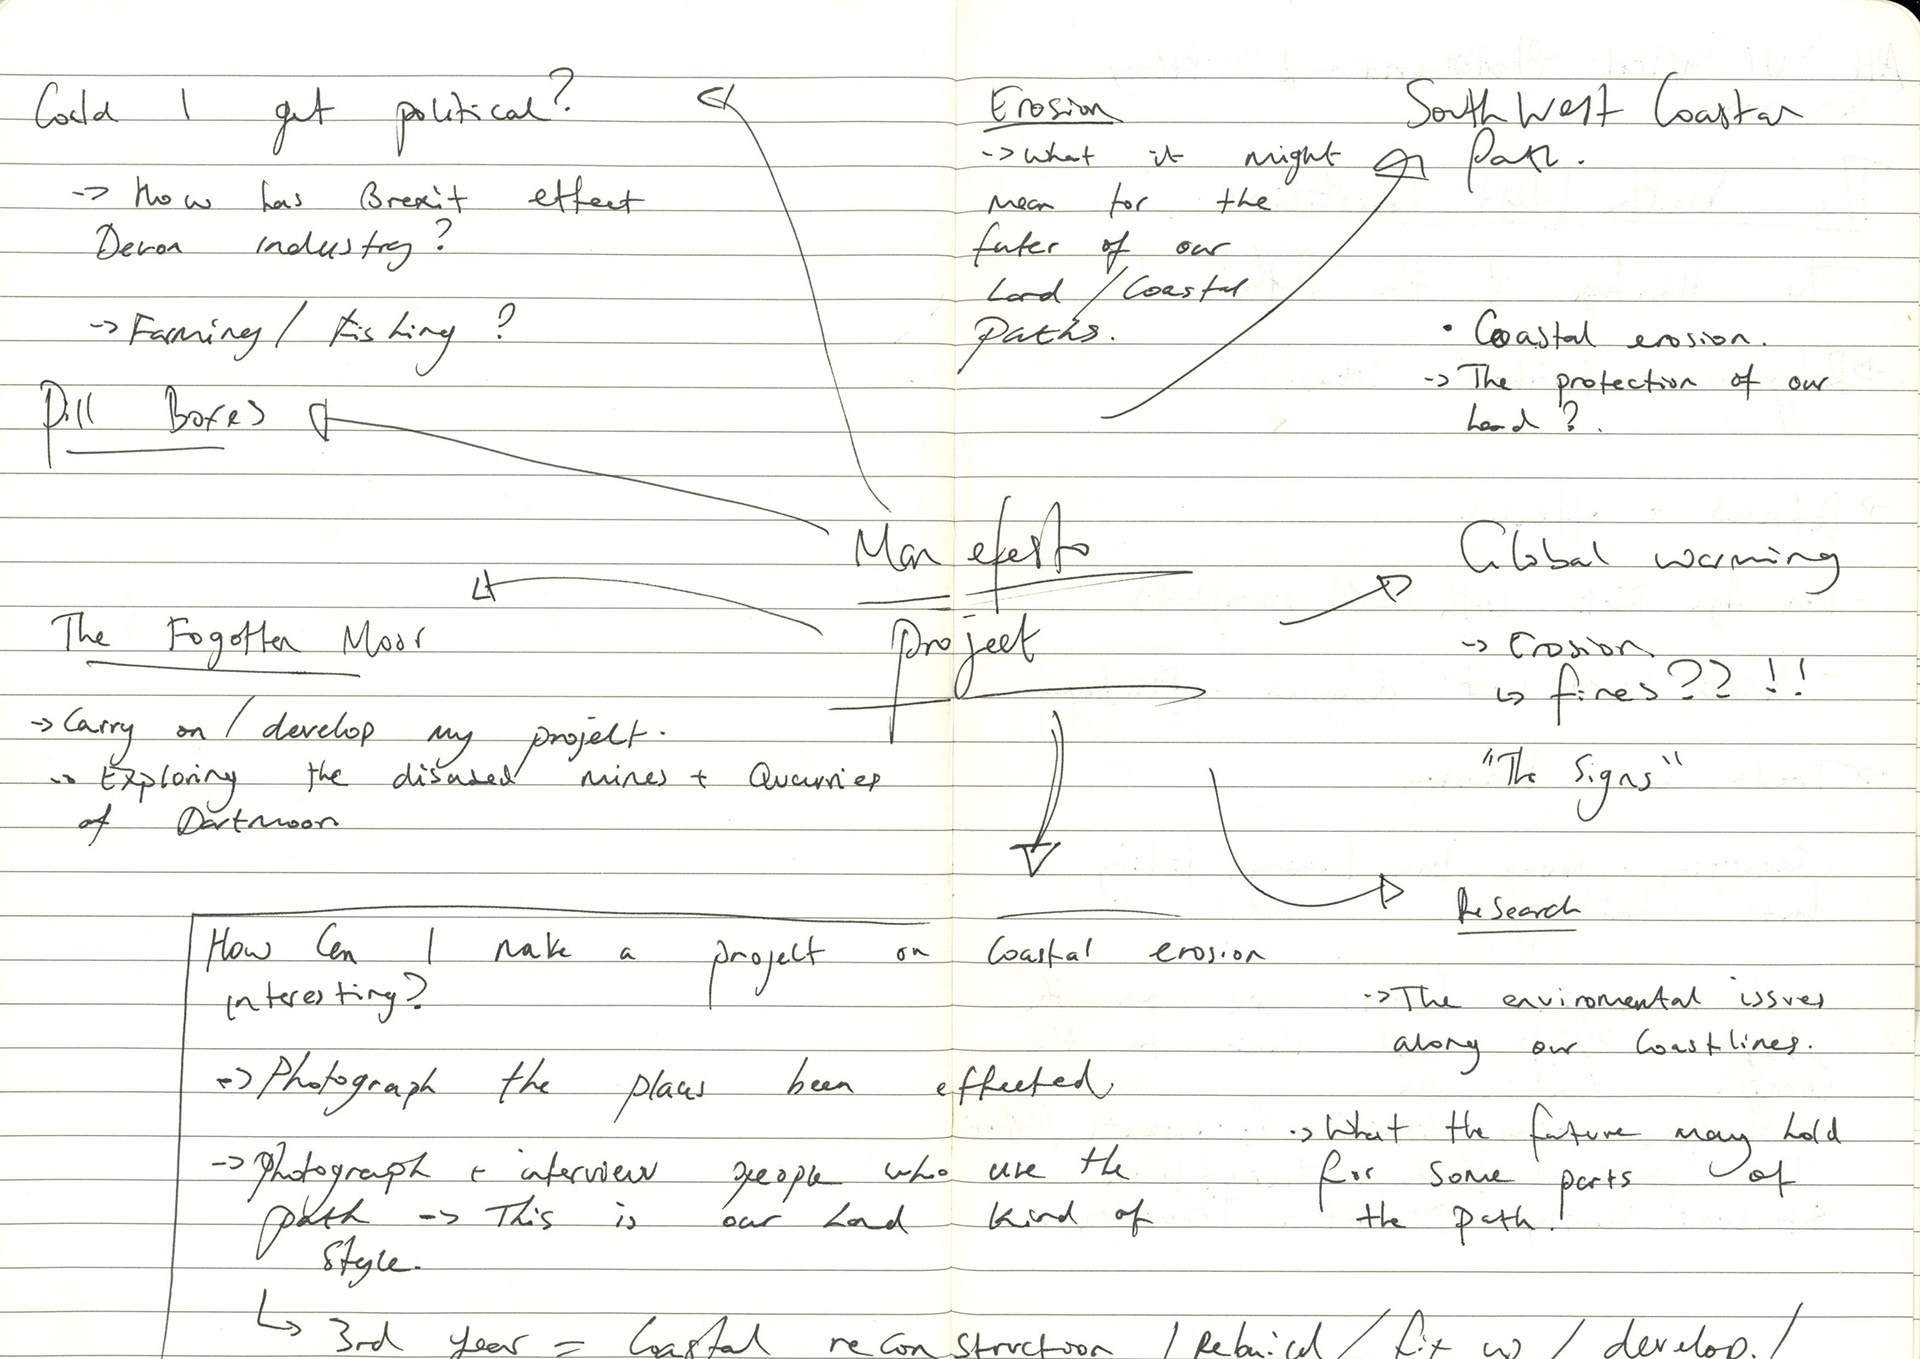 Could I get political?
-> How has Brexit effect
Devon industry?
-> Farming / Fishing ?
Pill Boxes
Erosion
-> What it might
mean for the
futer of our
Land / Coastal
Paths.
South West Coastar
Path.
• Coastal erosion.
-> The protection of our
Land ?.
Manefesto
project
Global warming
-> Erosion
↳ fires?? !!
"The Signs"
The Fogotten Moor
-> Carry on / develop my project.
-> Exploring the disused mines + Quarries
of Dartmoor
Research
-> The enviromental issues
along our Coastlines.
-> What the future may hold
for some parts of
the path.
How Can I make a project on Coastal erosion
interesting?
-> Photograph the places been effected
-> Photograph + interview people who use the
path -> This is our Land kind of
Style.
↳ 3rd year = Coastal reconstruction / Rebuild / fix up / develop. /